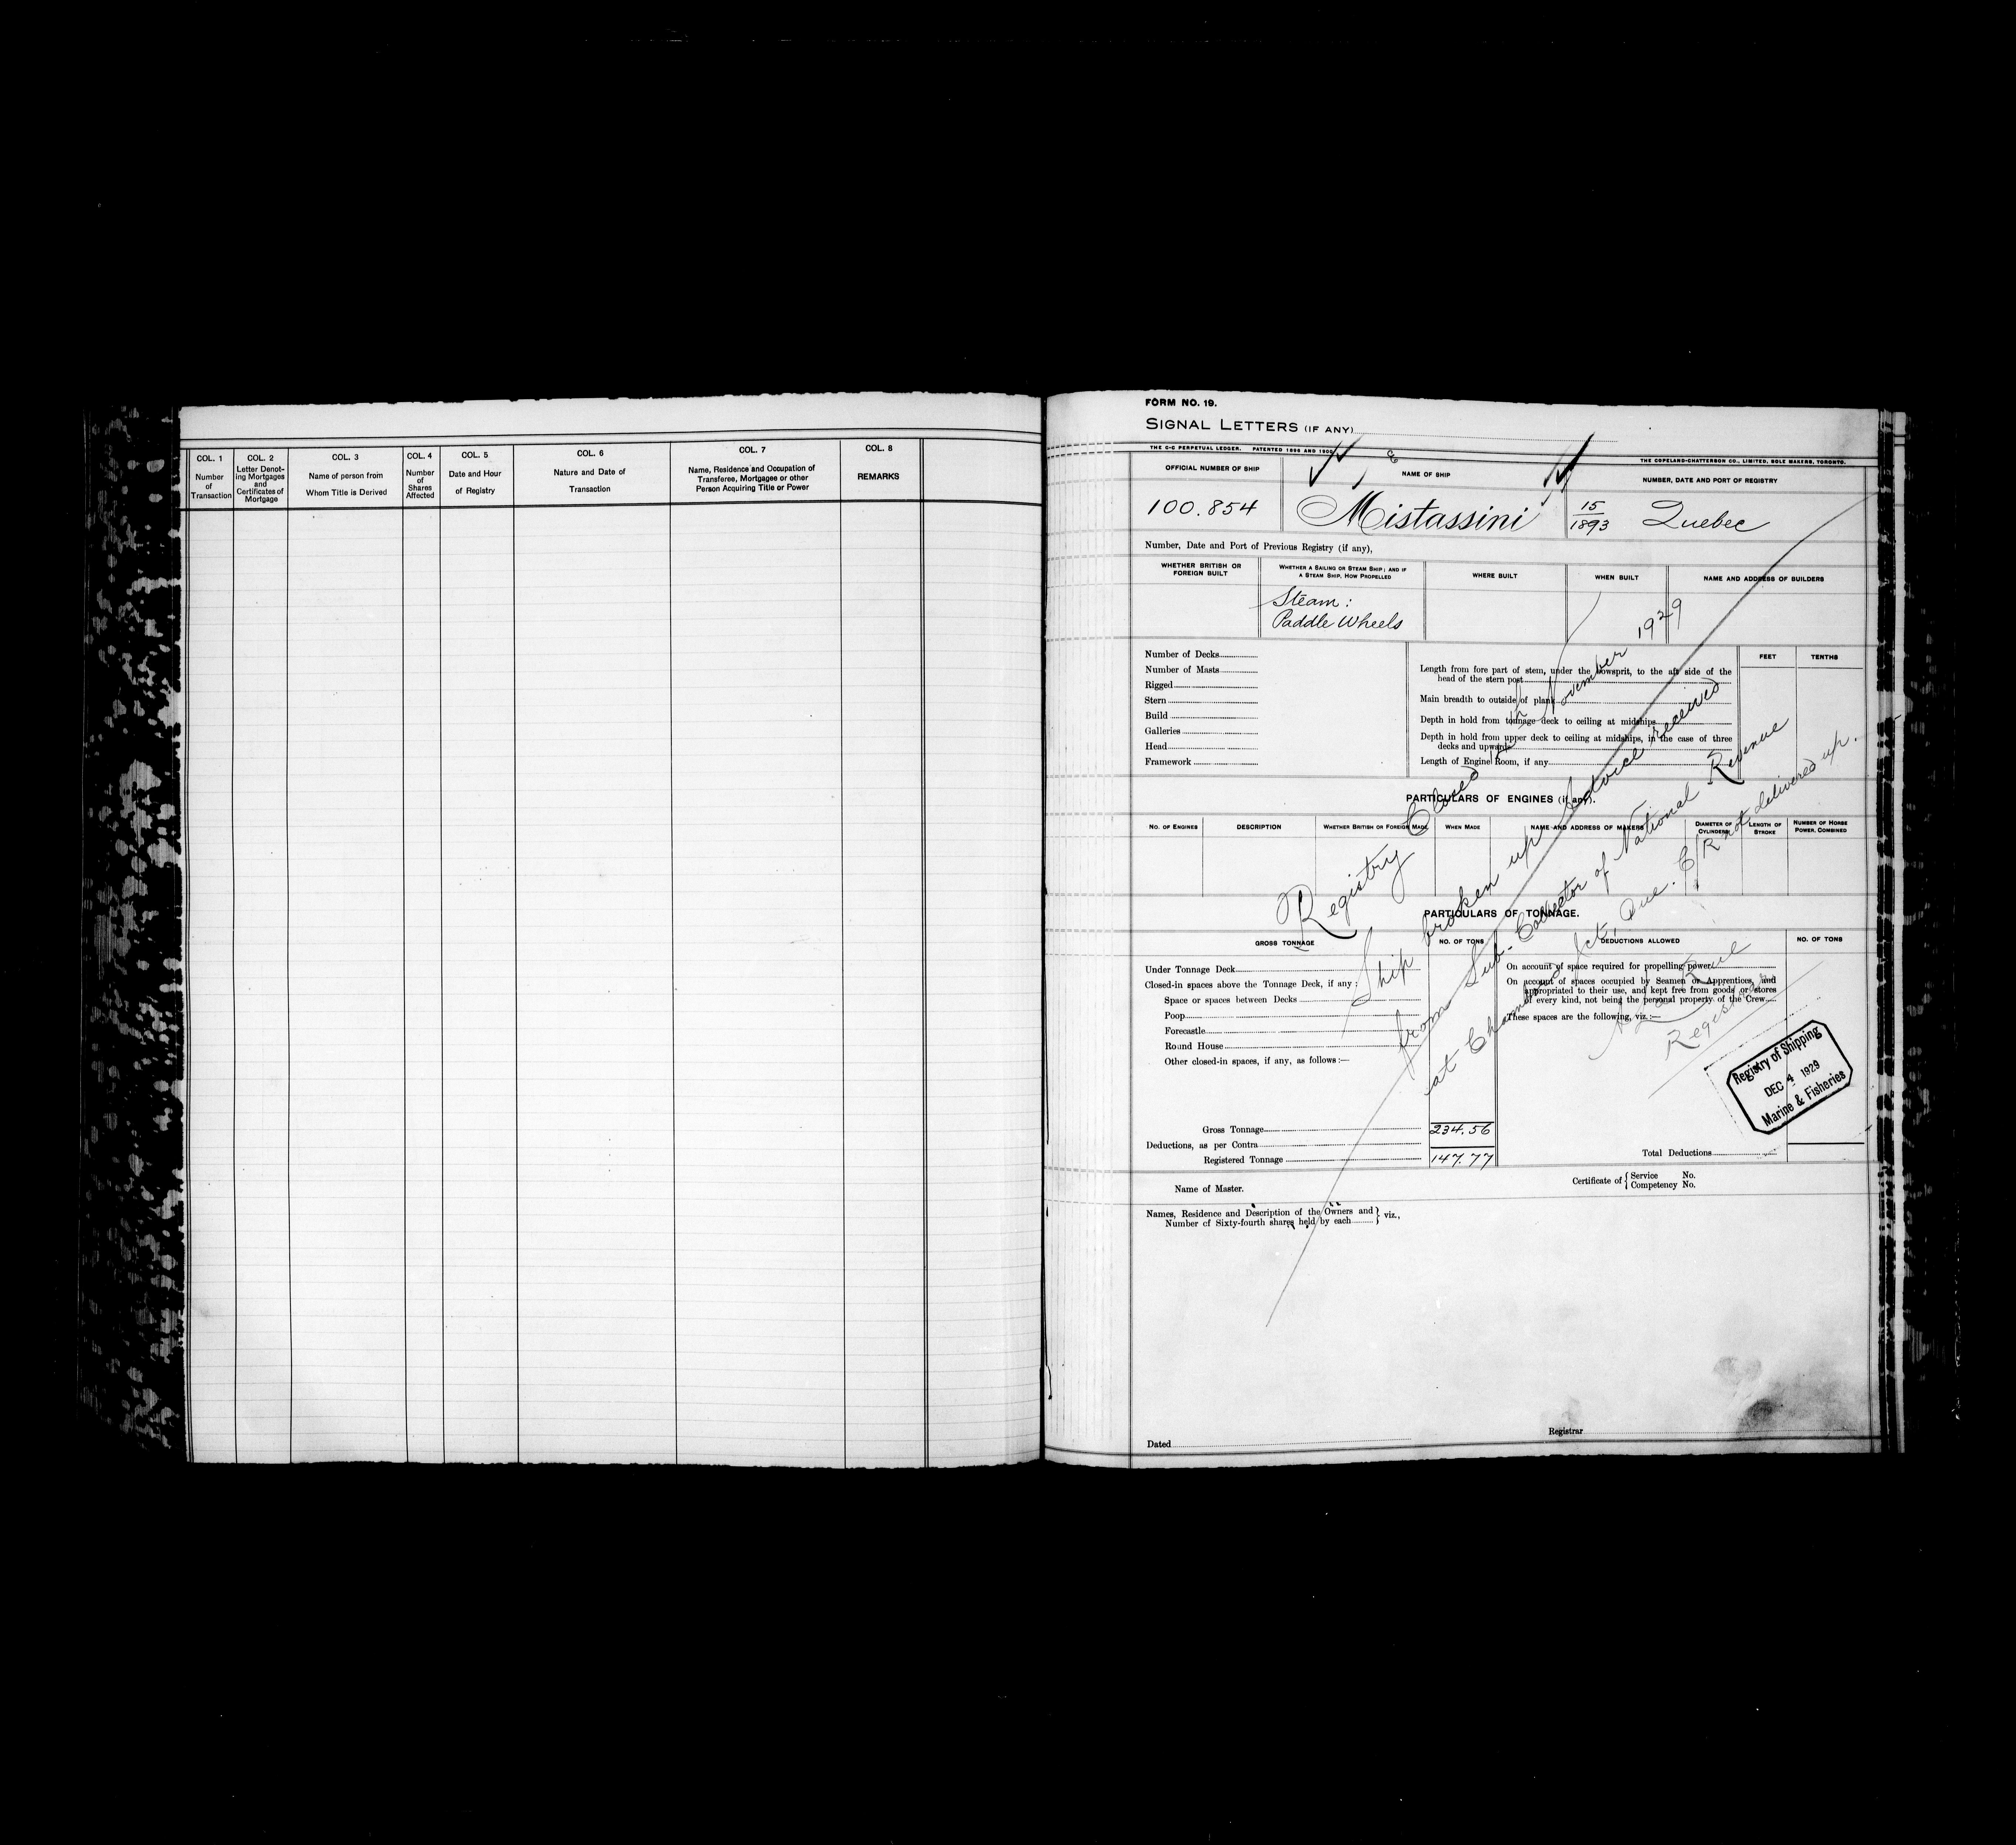 COL. 1
Number
of
Transaction
COL. 2
Letter Denot-
ing Mortgages
and
Certificates of
Mortgage
COL. 3
Name of person from
Whom Title is Derived
COL. 4
Number
of
Shares
Affected
COL. 5
Date and Hour
of Registry
COL. 6
Nature and Date of
Transaction
COL. 7
Name, Residence and Occupation of
Transferee, Mortgagee or other
Person Acquiring Title or Power
COL. 8
REMARKS
FORM NO. 19.
SIGNAL LETTERS (IF ANY)
THE C-C PERPETUAL LEDGER. PATENTED 1896 AND 1900
THE COPELAND-CHATTERSON CO., LIMITED, SOLE MAKERS, TORONTO.
OFFICIAL NUMBER OF SHIP
NAME OF SHIP
NUMBER, DATE AND PORT OF REGISTRY
100.854
Mistassini
15
1893
Quebec
Number, Date and Port of Previous Registry (if any),
WHETHER BRITISH OR
FOREIGN BUILT
WHETHER A SAILING OR STEAM SHIP; AND IF
A STEAM SHIP, HOW PROPELLED
WHERE BUILT
WHEN BUILT
NAME AND ADDRESS OF BUILDERS
Steam:
Paddle Wheels
Number of Decks
Number of Masts
Rigged
Stern
Build
Galleries
Head
Framework
FEET
TENTHS
Length from fore part of stem, under the bowsprit, to the aft side of the
head of the stern post
Main breadth to outside of plank
Depth in hold from tonnage deck to ceiling at midships
Depth in hold from upper deck to ceiling at midships, in the case of three
decks and upwards
Length of Engine Room, if any
PARTICULARS OF ENGINES (if any).
NO. OF ENGINES
DESCRIPTION
WHETHER BRITISH OR FOREIGN MADE
WHEN MADE
NAME AND ADDRESS OF MAKERS
DIAMETER OF
CYLINDERS
LENGTH OF
STROKE
NUMBER OF HORSE
POWER, COMBINED
Registry Closed November 1929
Ship broken up Advice received
from Sub-Collector of National Revenue
at Jct, Que. C/R not delivered up.
Registrar
PARTICULARS OF TONNAGE.
GROSS TONNAGE
NO. OF TONS
DEDUCTIONS ALLOWED
NO. OF TONS
Under Tonnage Deck
Closed-in spaces above the Tonnage Deck, if any:
Space or spaces between Decks
Poop
Forecastle
Round House
Other closed-in spaces, if any, as follows:—
On account of space required for propelling power
On account of spaces occupied by Seamen or Apprentices, and
appropriated to their use, and kept free from goods or stores
of every kind, not being the personal property of the Crew
These spaces are the following, viz.:—
Registry of Shipping
DEC 4 1929
Marine & Fisheries
Gross Tonnage 234.56
Deductions, as per Contra
Registered Tonnage 147.77
Total Deductions
Name of Master.
Certificate of { Service No.
Competency No.
Names, Residence and Description of the Owners and
Number of Sixty-fourth shares held by each } viz.,
Dated
Registrar